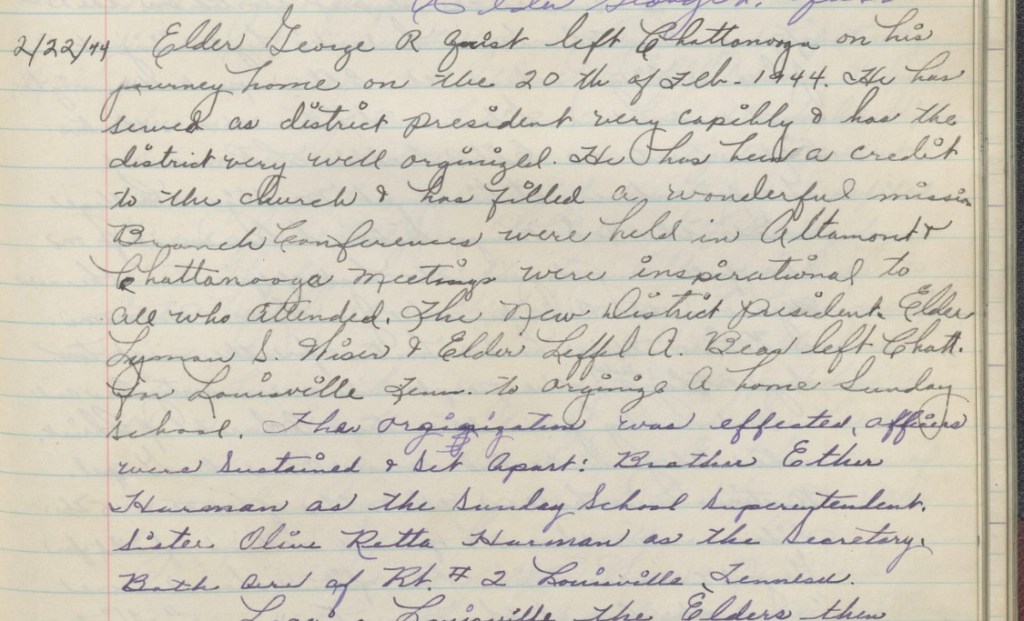 Elder George R.
2/22/44 Elder George R Quist left Chattanooga on his
journey home on the 20 th of Feb. 1944. He has
served as district president very capibly & has the
district very well orginized. He has been a credit
to the church & has filled a wonderful mission
Branch Conferences were held in Altamont &
Chattanooga Meetings were inspirational to
all who attended. The New District President. Elder
Lyman S. Wiser & Elder Leffel A. Bean left Chatt.
for Louisville Tenn. to orginize A home Sunday
School. The orginization was effected, officers
were Sustained & Set Apart: Brother Ether
Harman as the Sunday School Superentendent.
Sister Olive Retta Harman as the Secretary.
Both are of Rt. # 2 Louisville, Tennessee.
Louisville the Elders then